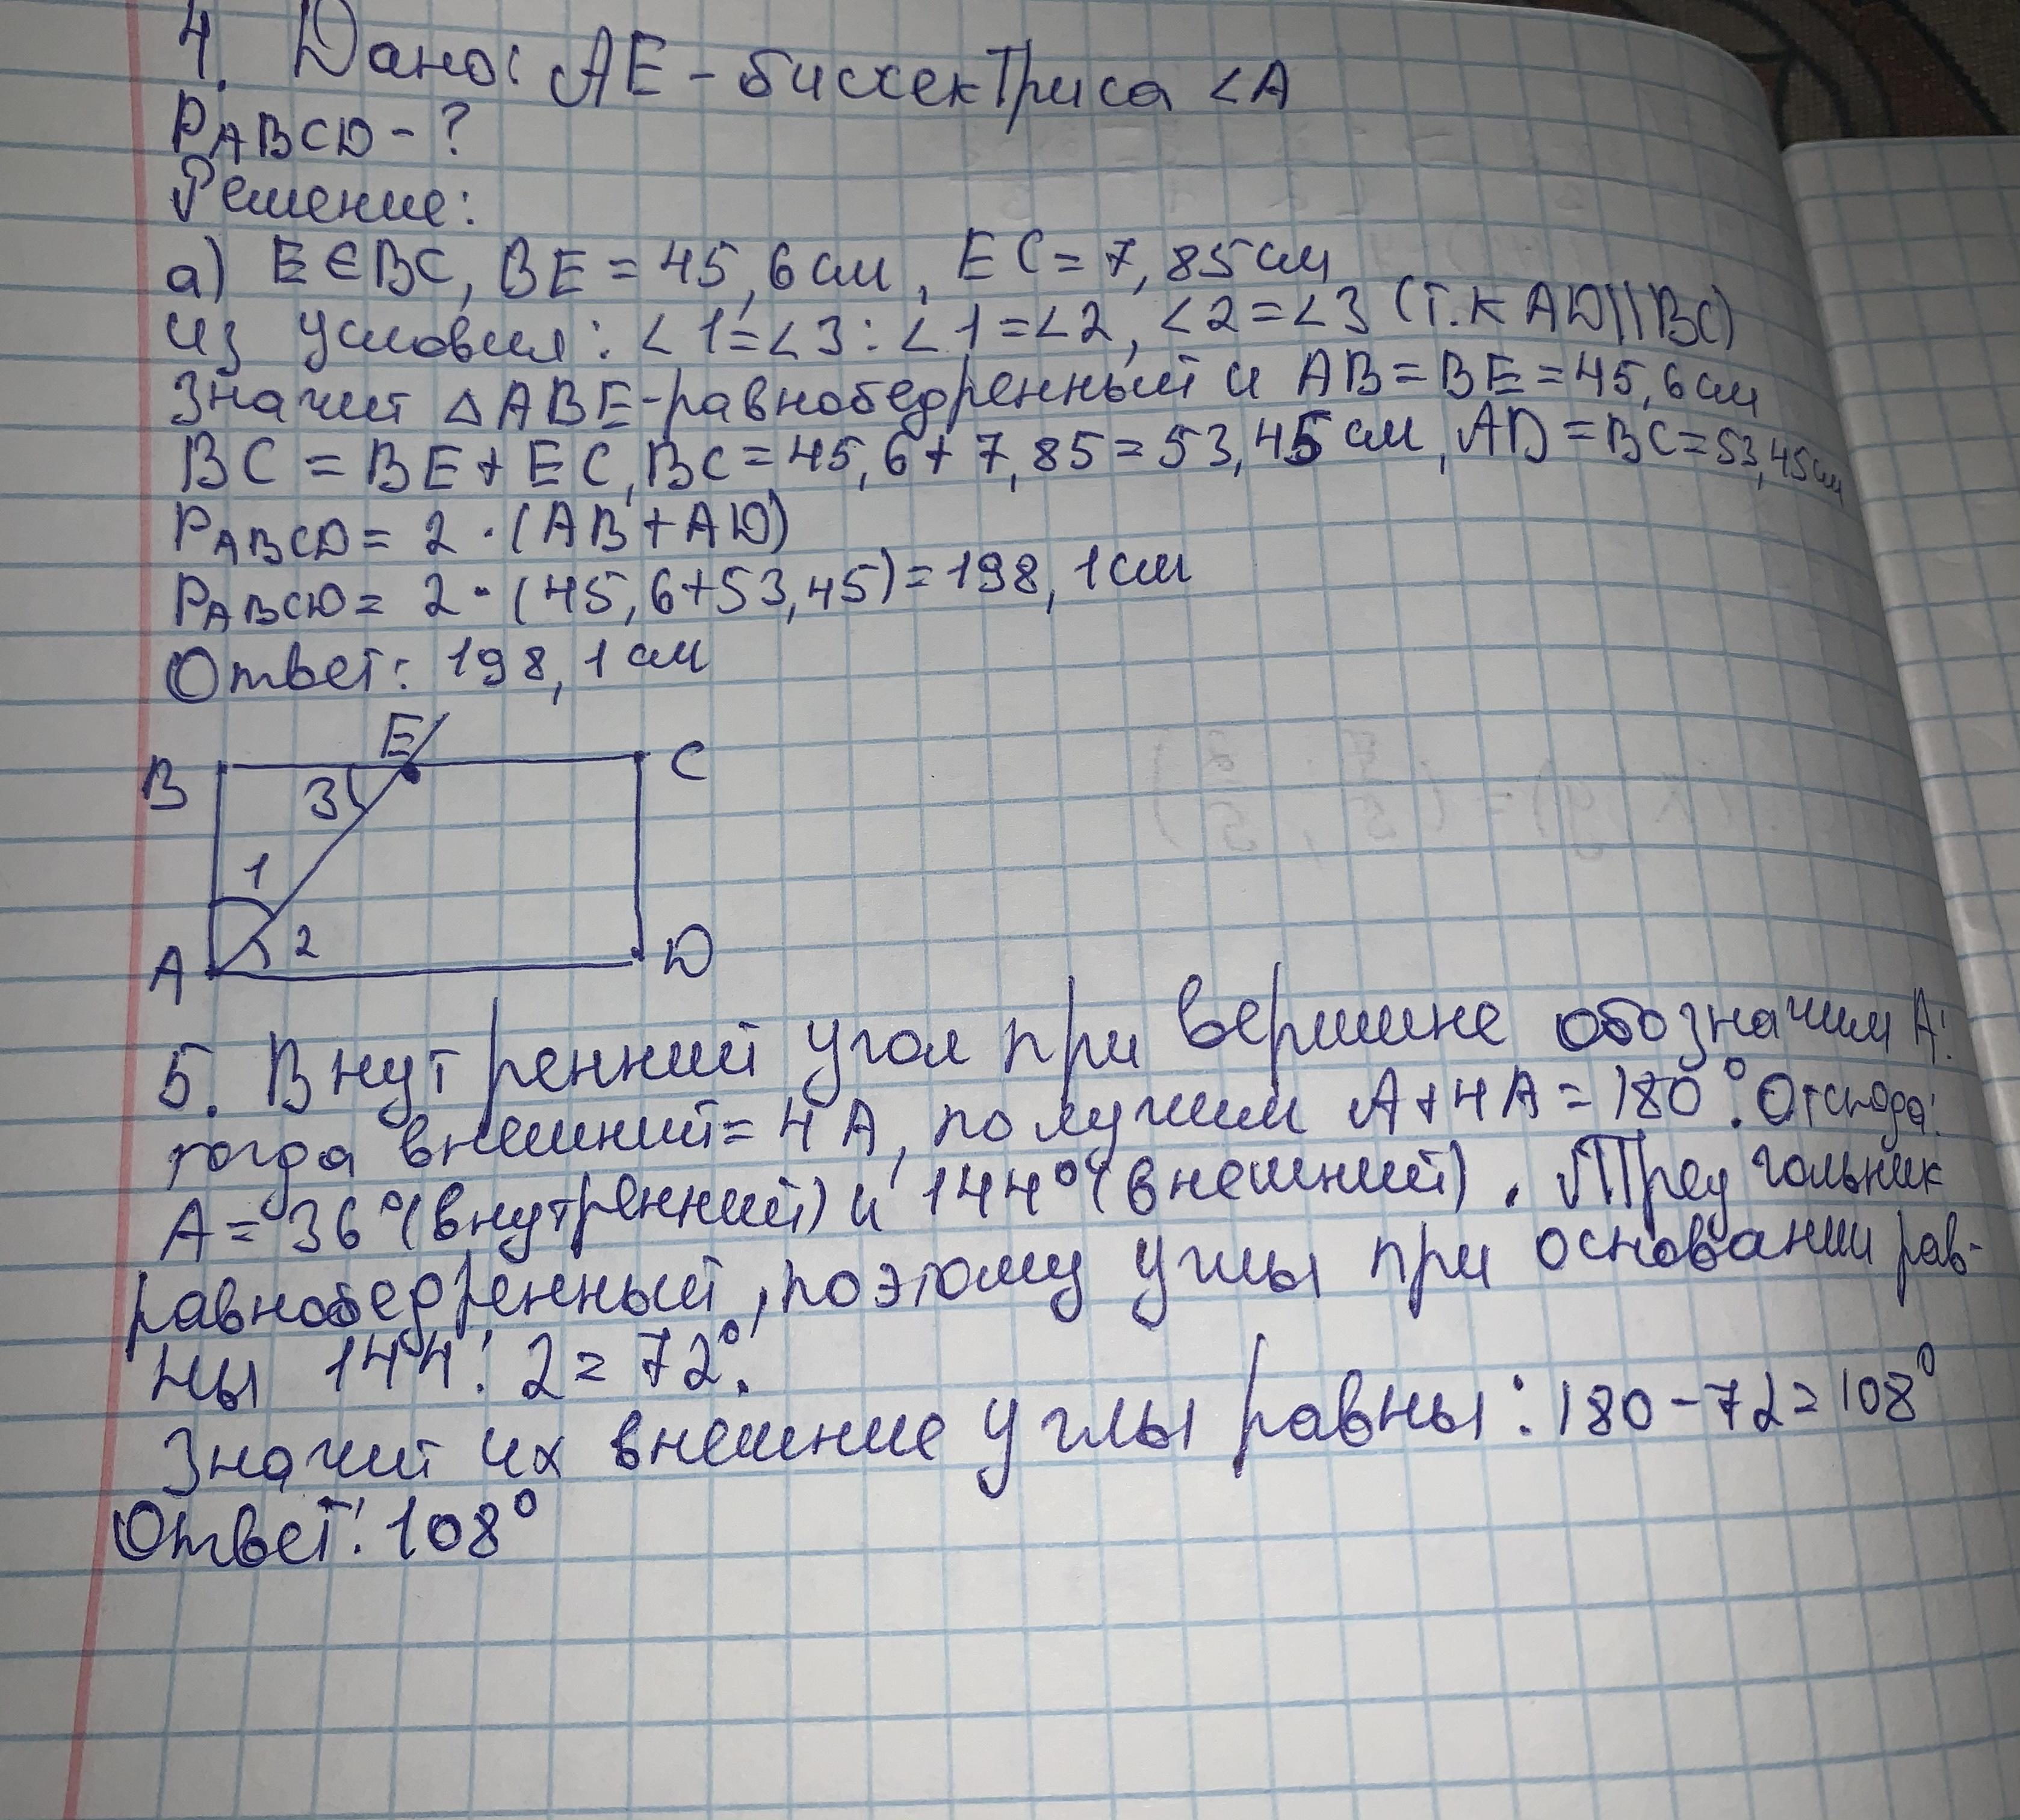 4. Дано: AE - биссектриса <A
PABCD - ?
Решение:
а) E∈BC, BE = 45,6 см, EC = 7,85 см
Из условия: <1=<3: <1=<2, <2=<3 (т.к AD||BC)
Значит △ABE-равнобедренный и AB=BE=45,6 см
BC = BE+EC, BC=45,6+7,85=53,45 см, AD=BC=53,45см
PABCD= 2·(AB+AD)
PABCD= 2·(45,6+53,45)=198,1 см
Ответ: 198,1 см
E
B
C
3
1
2
A
D
5. Внутренний угол при вершине обозначим A:
тогда внешний=4A, получим A+4A=180°. Отсюда:
A=36°(внутренний) и 144°(внешний). Треугольник
равнобедренный, поэтому углы при основании рав-
ны 144:2=72°.
Значит их внешние углы равны: 180-72=108°
Ответ: 108°